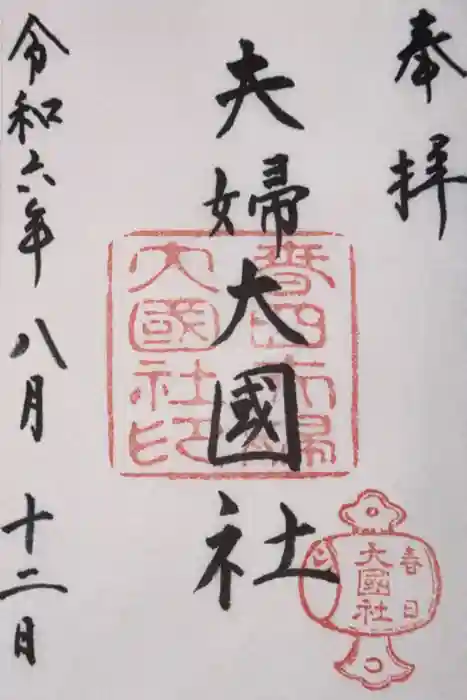 奉拝
夫婦大國社
春日夫婦
大國社印
春日
大國社
令和六年八月十二日